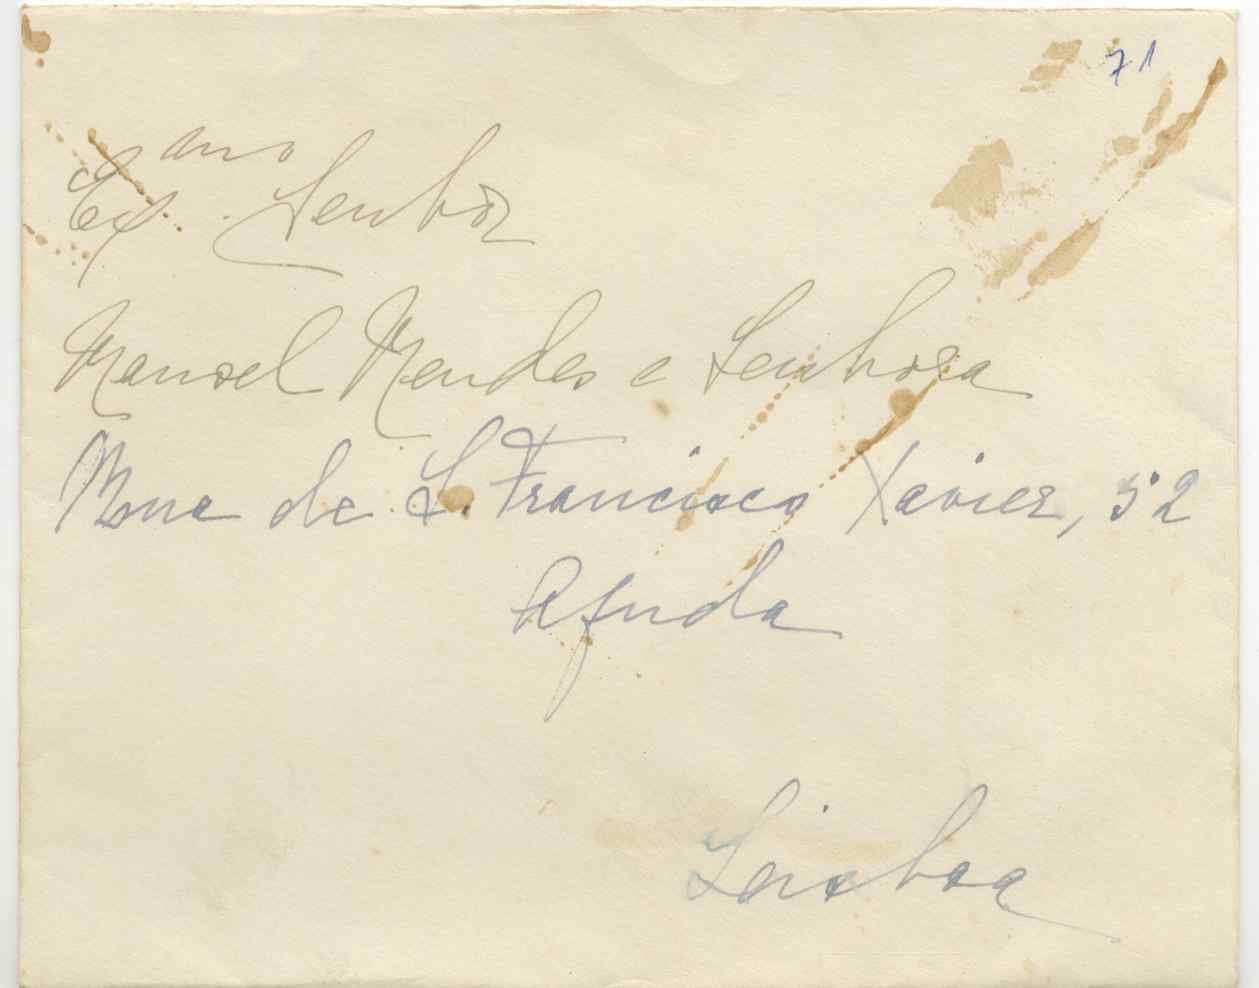 71
Exmo. Senhor
Manoel Mendes e Senhora
Rua de S. Francisco Xavier, 52
Ajuda
Lisboa